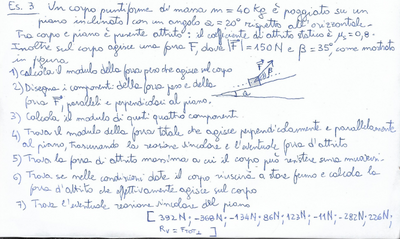 Es. 3 Un corpo puntiforme di massa m = 40 kg è poggiato su un
piano inclinato con un angolo α = 20° rispetto all'orizzontale.
Tra corpo e piano è presente attrito: il coefficiente di attrito statico è μs = 0,8.
Inoltre sul corpo agisce una forza F, dove |F⃗| = 150 N e β = 35°, come mostrato
in figura.
1) calcola il modulo della forza peso che agisce sul corpo
2) Disegna i componenti della forza peso e della
forza F⃗, paralleli e perpendicolari al piano.
3) Calcola il modulo di questi quattro componenti
4) Trova il modulo della forza totale che agisce perpendicolarmente e parallelamente
al piano, trascurando la reazione vincolare e l'eventuale forza d'attrito
5) Trova la forza di attrito massima a cui il corpo può resistere senza muoversi.
6) Trova se nelle condizioni date il corpo riuscirà a stare fermo e calcola la
forza d'attrito che effettivamente agisce sul corpo
7) Trova l'eventuale reazione vincolare del piano
[392N, -368N, -134N, 86N, 123N, -11N, -282N, 226N,
F⃗
β
α